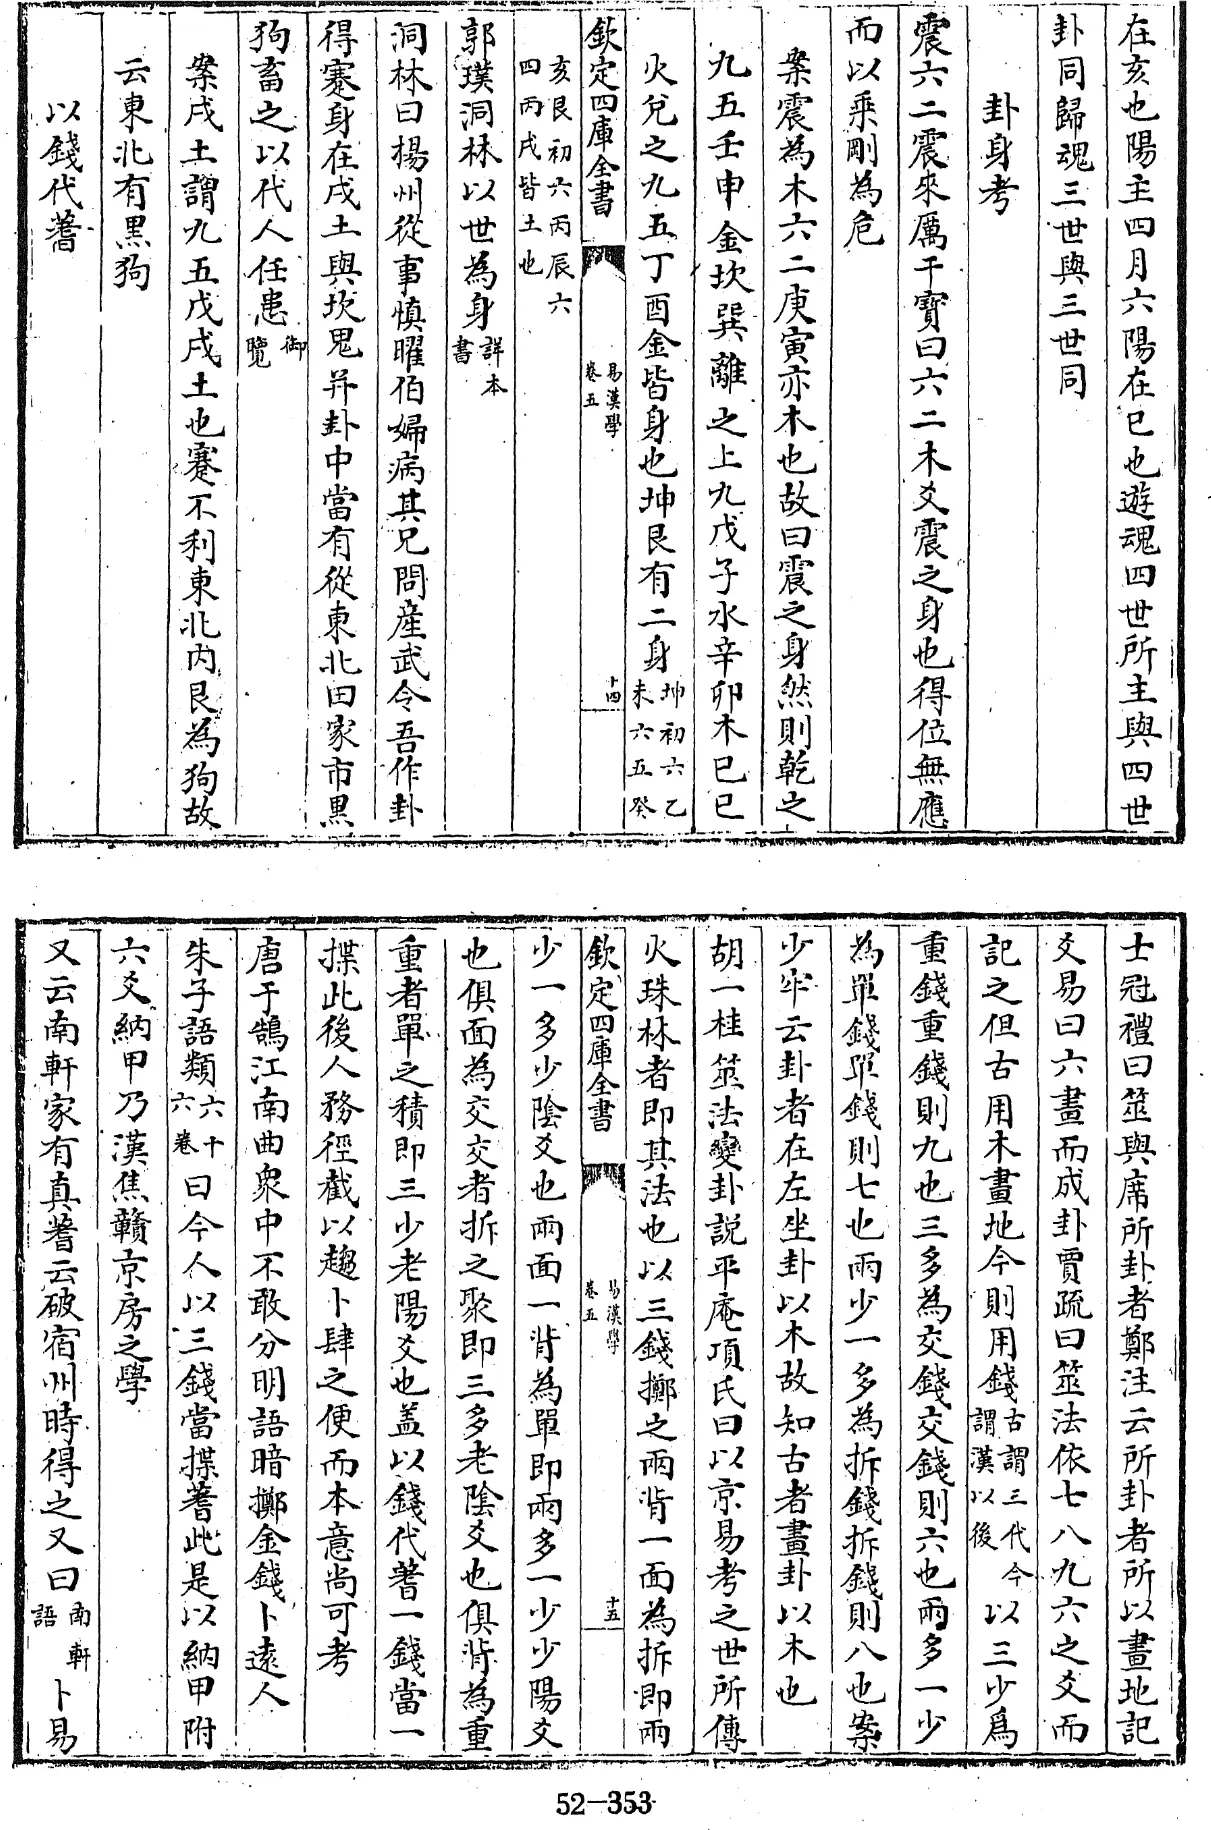 在亥也陽主四月六陽在巳也遊魂四世所主與四世
卦同歸魂三世與三世同
卦身考
震六二震來厲干寶曰六二木爻震之身也得位無應
而以乘剛為危
案震為木六二庚寅亦木也故曰震之身然則乾之
九五壬申金坎巽離之上九戊子水辛卯木已巳
火兌之九五丁酉金皆身也坤艮有二身坤初六乙未六五癸
欽定四庫全書 易漢學 卷五 十四
亥艮初六丙辰六四丙戌皆土也
郭璞洞林以世為身詳本書
洞林曰揚州從事慎曜伯婦病其兄問産武令吾作卦
得蹇身在戌土與坎鬼并卦中當有從東北田家市黒
狗畜之以代人任患御覽
案戌土謂九五戊戌土也蹇不利東北内艮為狗故
云東北有黒狗
以錢代蓍
士冠禮曰筮與席所卦者鄭注云所卦者所以畫地記
爻易曰六畫而成卦賈疏曰筮法依七八九六之爻而
記之但古用木畫地今則用錢古謂三代今謂漢以後以三少爲
重錢重錢則九也三多為交錢交錢則六也兩多一少
為單錢單錢則七也兩少一多為拆錢拆錢則八也案
少牢云卦者在左坐卦以木故知古者畫卦以木也
胡一桂筮法變卦説平庵項氏曰以京易考之世所傳
火珠林者即其法也以三錢擲之兩背一面為拆即兩
欽定四庫全書 易漢學 卷五 十五
少一多少陰爻也兩面一背為單即兩多一少少陽爻
也俱面為交交者拆之聚即三多老陰爻也俱背為重
重者單之積即三少老陽爻也盖以錢代蓍一錢當一
揲此後人務徑截以趨卜肆之便而本意尚可考
唐于鵠江南曲衆中不敢分明語暗擲金錢卜遠人
朱子語類六十六卷曰今人以三錢當揲蓍此是以納甲附
六爻納甲乃漢焦贛京房之學
又云南軒家有真蓍云破宿州時得之又曰南軒語卜易
52-353